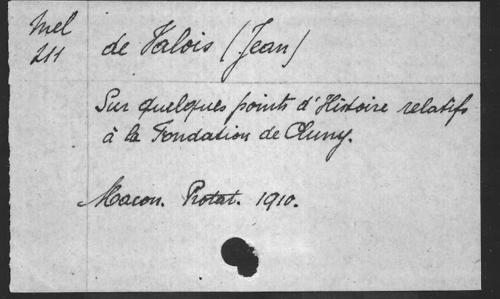 Mel
211
de Valois (Jean)
Sur quelques points d'Histoire relatifs
à la Fondation de Cluny.
Macon. Protat. 1910.